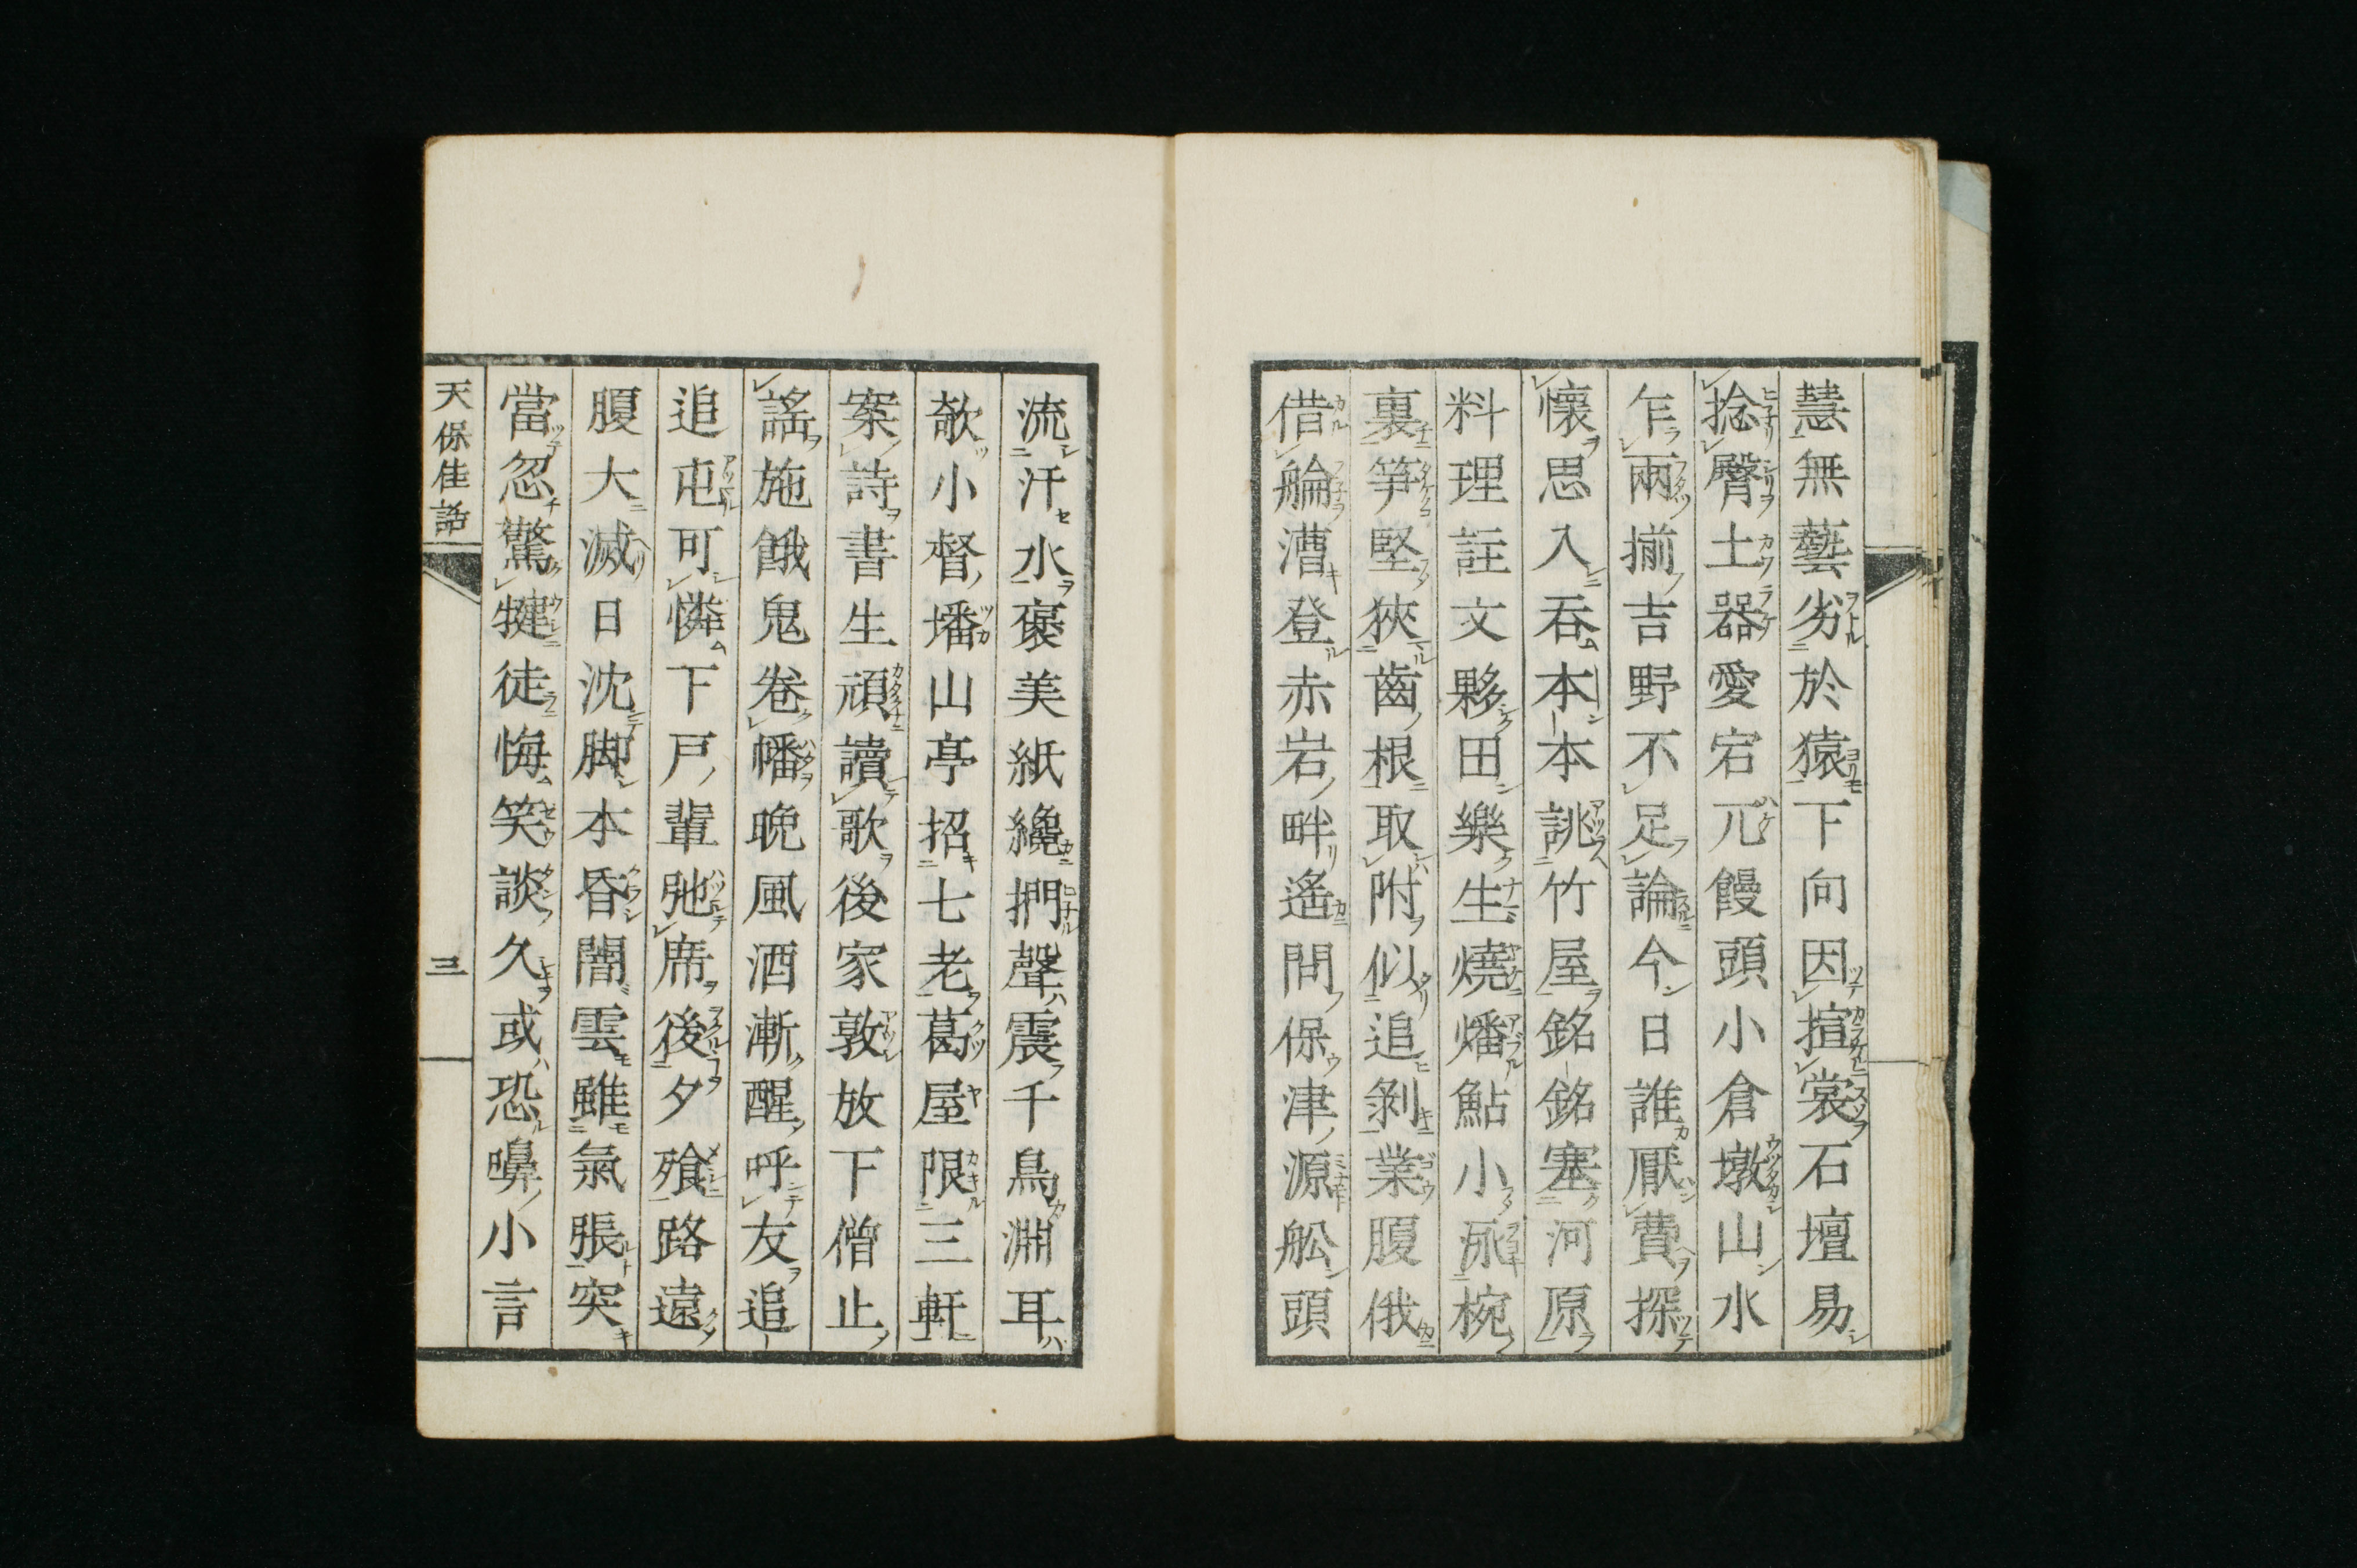 慧無藝劣於猿下向因揎裳石壇易
捻臀土器愛宕兀饅頭小倉墩山水
乍兩揃吉野不足論今日誰厭費探
懷思入呑本本誂竹屋銘銘塞河原
料理註文夥田樂生燒燔鮎小𣴑椀
裏笋堅狹齒根取附似追剝業腹俄
借艙漕登赤岩畔遙問保津源舩頭
流汗水褒美紙纔捫聲震千鳥淵耳
欹小督墦山亭招七老葛屋限三軒
案詩書生頑讀歌後家敦放下僧止
謠施餓鬼卷幡晩風酒漸醒呼友追
追屯可憐下戸輩弛席後夕飱路遠
腹大減日沈脚本昏闇雲雖氣張突
當忽驚犍徒悔笑談久或恐嚊小言
天保佳話
三